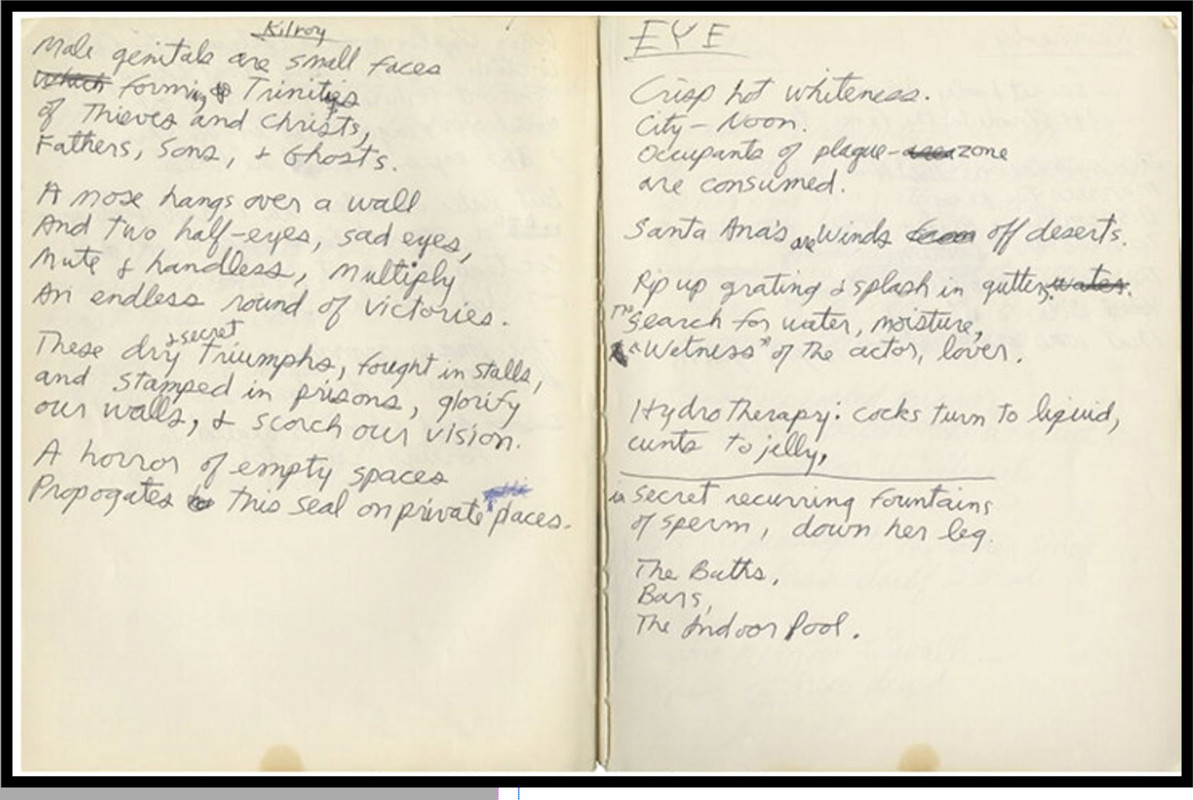 Kilroy
Male genitals are small faces
which forming Trinities
of Thieves and Christs,
Fathers, Sons, & Ghosts.
A nose hangs over a wall
And two half-eyes, sad eyes,
Mute & handless, multiply
An endless round of victories.
These dry & secret Triumphs, fought in stalls,
and stamped in prisons, glorify
our walls, & scorch our vision.
A horror of empty spaces
Propogates This seal on private places.
EYE
Crisp hot whiteness.
City – Noon.
Occupants of plague-area zone
are consumed.
Santa Ana's are Winds off deserts.
Rip up grating & splash in gutters. water.
The search for water, moisture,
"Wetness" of the actor, lover.
Hydro Therapy: cocks turn to liquid,
cunts to jelly,
in secret recurring fountains
of sperm, down her leg.
The Baths,
Bars,
The Indoor Pool.